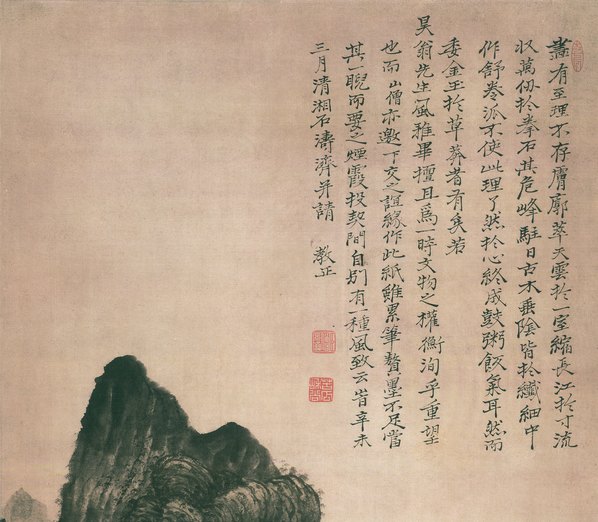 畫有至理不存膚廓萃天雲於一室縮長江於寸流
収萬仭於拳石其危峰駐日古木垂陰皆於纖細中
作舒卷派不使此理了然於心終成鼓粥飯氣耳然而
委金玉於草莽者有矣若
昊翁先生風雅畢擅且為一時文物之權衡洵乎重望
也而山僧亦邀下交之誼緣作此紙雖累筆贅墨不足當
其一睨而要之煙霞投契間自別有一種風致云旹辛未
三月清湘石濤濟并請 教正